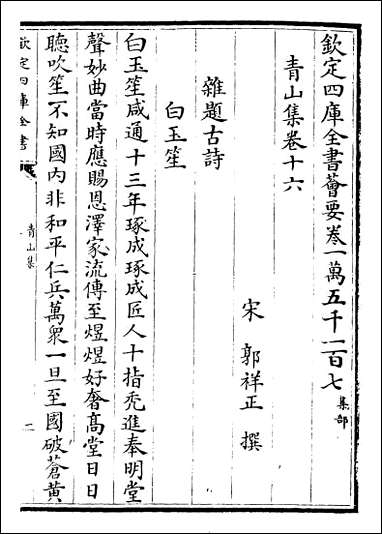 欽定四庫全書薈要卷一萬五千二百七 集部
青山集卷十六
宋 郭祥正 撰
雜題古詩
白玉笙
白玉笙咸通十三年琢成琢成匠人十指禿進奉明堂
聲妙曲當時應賜恩澤家流傳至煜煜好奢高堂日日
聽吹笙不知國內非和平仁兵萬衆一旦至國破蒼黃
欽定四庫全書
青山集
一